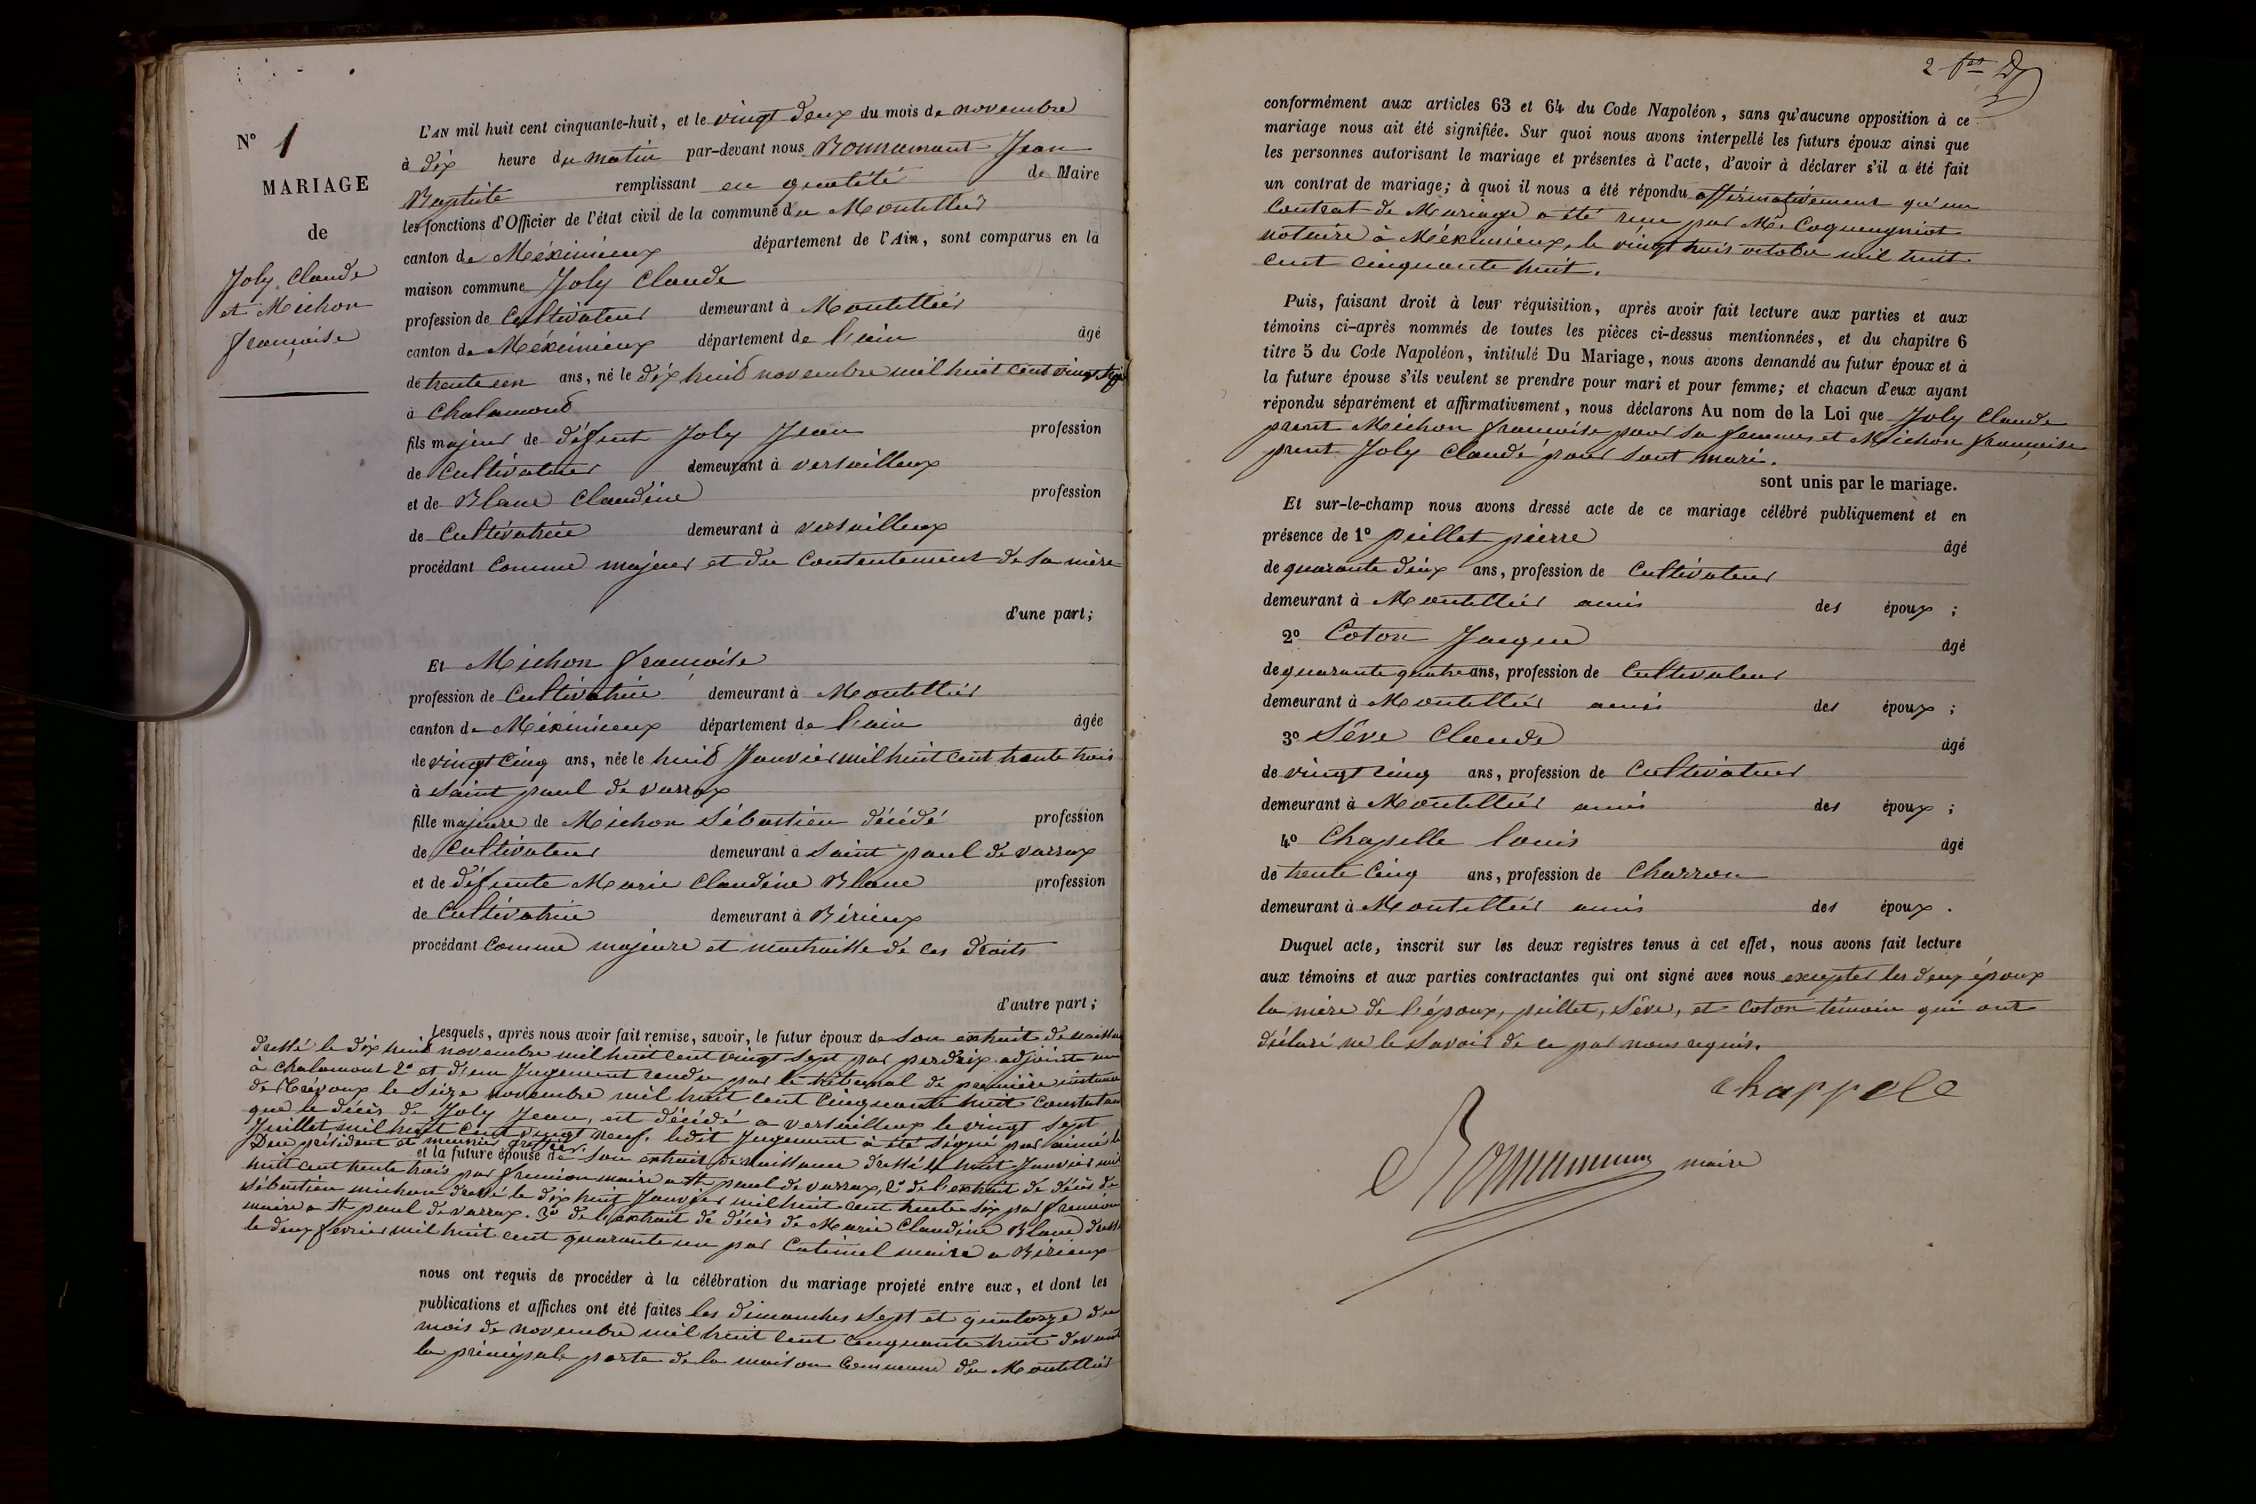 N° 1
MARIAGE
de
Joly Claude
et Michon
françoise
L'AN mil huit cent cinquante-huit, et le vingt deux du mois de novembre
à dix heure du matin par-devant nous Jean
Baptiste remplissant en qualité de Maire
les fonctions d'Officier de l'état civil de la commune du Montellier
canton de Méximieux département de l'Ain, sont comparus en la
maison commune Joly Claude
profession de Cultivateur demeurant à Montellier
canton de Méximieux département de l'ain âgé
de trente un ans, né le dix huit novembre mil huit cent vingt sept
à Chalamont
fils majeur de défunt Joly Jean profession
de Cultivateur demeurant à versailleux
et de Blanc Claudine profession
de Cultivatrice demeurant à versailleux
procédant Comme majeur et du Consentement de sa mère
d'une part;
Et Michon françoise
profession de Cultivatrice demeurant à Montellier
canton de Méximieux département de l'ain âgée
de vingt Cinq ans, née le huit Janvier mil huit cent trente trois
à Saint paul de varrax
fille majeure de Michon Sébastien décédé profession
de Cultivateur demeurant à Saint paul de varrax
et de défunte Marie Claudine Blanc profession
de Cultivatrice demeurant à Birieux
procédant Comme majeure et maitraisse de ces droits
d'autre part;
Lesquels, après nous avoir fait remise, savoir, le futur époux de Son extrait de naissance
dressé le dix huit novembre mil huit cent vingt sept par perdrix adjoint
à Chalamont 2° et d'un Jugement rendu par le tribunal de première instance
de Trévoux le Seize novembre mil huit cent Cinquante huit Constatant
que le décès de Joly Jean, est décédé a versailleux le vingt sept
Juillet mil huit cent vingt neuf. ledit Jugement à été signé par aimé
président et meunier greffier.
et la future épouse de son extrait de naissance dressé le huit Janvier mil
huit cent trente trois par maire a St paul de varrax, 2° de l'extrait de décès de
Sébastien michon dressé le dix huit Janvier mil huit cent trente six par
maire a St paul de varrax. 3° de l'extrait de décès de Marie Claudine Blanc dressé
le deux fevrier mil huit cent quarante un par maire a Birieux
nous ont requis de procéder à la célébration du mariage projeté entre eux, et dont les
publications et affiches ont été faites les dimanches sept et quatorze du
mois de novembre mil huit cent cinquante huit devant
la principale porte de la maison Commune du Montellier
2
conformément aux articles 63 et 64 du Code Napoléon, sans qu'aucune opposition à ce
mariage nous ait été signifiée. Sur quoi nous avons interpellé les futurs époux ainsi que
les personnes autorisant le mariage et présentes à l'acte, d'avoir à déclarer s'il a été fait
un contrat de mariage; à quoi il nous a été répondu affirmativement qu'un
Contrat de Mariage a été reçu par Me
notaire à Méximieux, le vingt trois octobre mil huit
cent cinquante huit.
Puis, faisant droit à leur réquisition, après avoir fait lecture aux parties et aux
témoins ci-après nommés de toutes les pièces ci-dessus mentionnées, et du chapitre 6
titre 5 du Code Napoléon, intitulé Du Mariage, nous avons demandé au futur époux et à
la future épouse s'ils veulent se prendre pour mari et pour femme; et chacun d'eux ayant
répondu séparément et affirmativement, nous déclarons Au nom de la Loi que Joly Claude
prent Michon françoise pour sa femme et Michon françoise
prent Joly Claude pour sont mari.
sont unis par le mariage.
Et sur-le-champ nous avons dressé acte de ce mariage célébré publiquement et en
présence de 1° peillet pierre âgé
de quarante deux ans, profession de Cultivateur
demeurant à Montellier amis des époux ;
2° Coton Jaque âgé
de quarante quatre ans, profession de Cultivateur
demeurant à Montellier amis des époux ;
3° Sêve Claude âgé
de vingt cinq ans, profession de Cultivateur
demeurant à Montellier amis des époux ;
4° Chapelle louis âgé
de trente Cinq ans, profession de Charron
demeurant à Montellier amis des époux .
Duquel acte, inscrit sur les deux registres tenus à cet effet, nous avons fait lecture
aux témoins et aux parties contractantes qui ont signé avec nous excepter les deux époux
la mère de l'époux, peillet, Sêve, et Coton témoin qui ont
déclaré ne le savoir de ce par nous requis.
chappele
maire